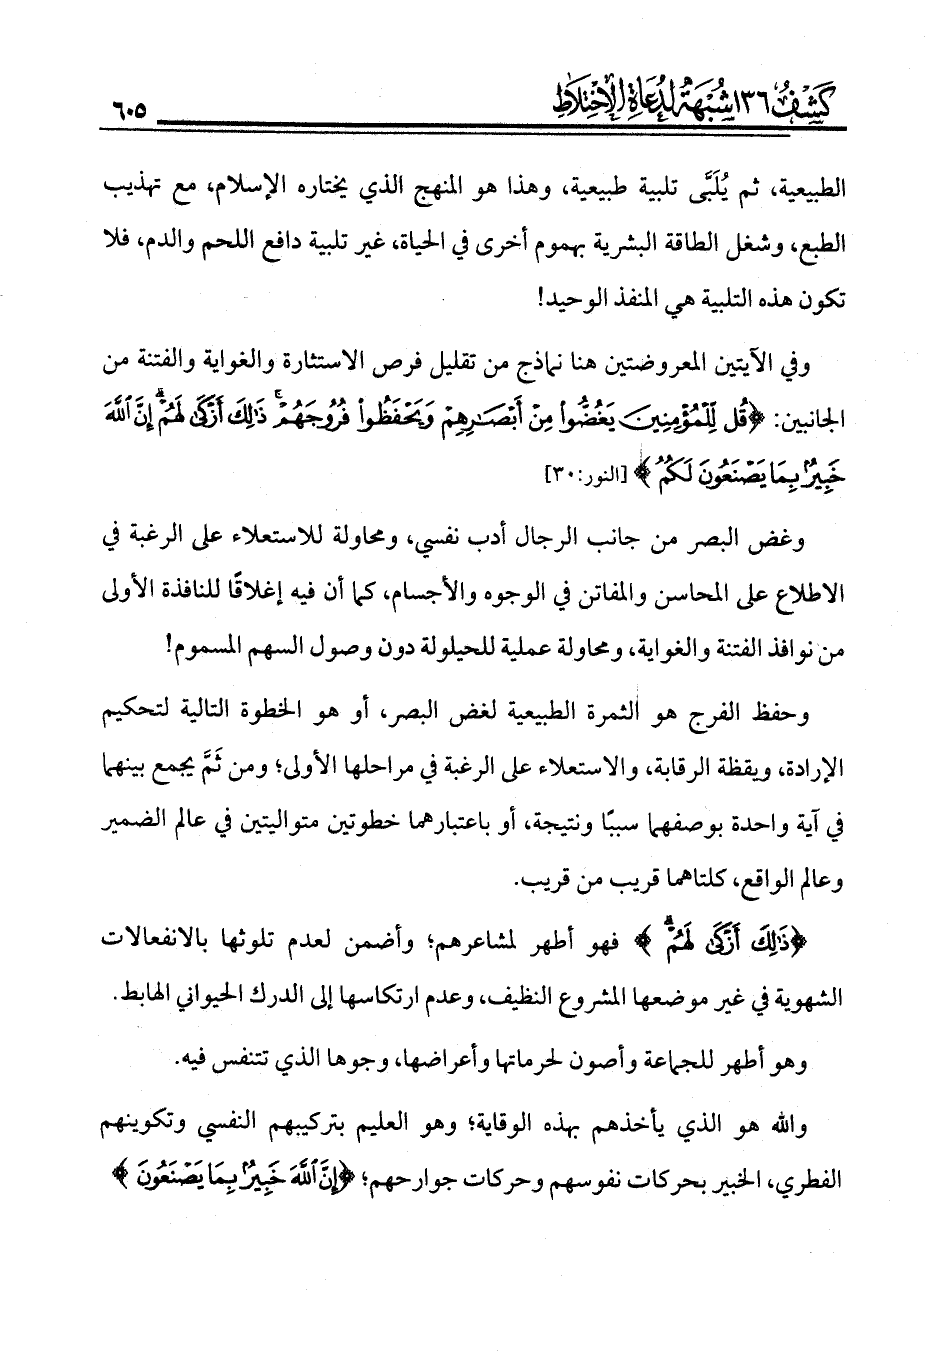 كشف ١٣٦ شبهة لدعاة الاختلاط
٦٠٥
الطبيعية، ثم يُلَبَّى تلبية طبيعية، وهذا هو المنهج الذي يختاره الإسلام، مع تهذيب
الطبع، وشغل الطاقة البشرية بهموم أخرى في الحياة، غير تلبية دافع اللحم والدم، فلا
تكون هذه التلبية هي المنفذ الوحيد!
وفي الآيتين المعروضتين هنا نماذج من تقليل فرص الاستثارة والغواية والفتنة من
الجانبين: ﴿قُل لِّلْمُؤْمِنِينَ يَغُضُّوا۟ مِنْ أَبْصَـٰرِهِمْ وَيَحْفَظُوا۟ فُرُوجَهُمْ ۚ ذَٰلِكَ أَزْكَىٰ لَهُمْ ۗ إِنَّ ٱللَّهَ
خَبِيرٌۢ بِمَا يَصْنَعُونَ لَكُمْ﴾ [النور:٣٠]
وغض البصر من جانب الرجال أدب نفسي، ومحاولة للاستعلاء على الرغبة في
الاطلاع على المحاسن والمفاتن في الوجوه والأجسام، كما أن فيه إغلاقًا للنافذة الأولى
من نوافذ الفتنة والغواية، ومحاولة عملية للحيلولة دون وصول السهم المسموم!
وحفظ الفرج هو الثمرة الطبيعية لغض البصر، أو هو الخطوة التالية لتحكيم
الإرادة، ويقظة الرقابة، والاستعلاء على الرغبة في مراحلها الأولى؛ ومن ثَمَّ يجمع بينهما
في آية واحدة بوصفهما سببًا ونتيجة، أو باعتبارهما خطوتين متواليتين في عالم الضمير
وعالم الواقع، كلتاهما قريب من قريب.
﴿ذَٰلِكَ أَزْكَىٰ لَهُمْ ۗ﴾ فهو أطهر لمشاعرهم؛ وأضمن لعدم تلوثها بالانفعالات
الشهوية في غير موضعها المشروع النظيف، وعدم ارتكاسها إلى الدرك الحيواني الهابط.
وهو أطهر للجماعة وأصون لحرماتها وأعراضها، وجوها الذي تتنفس فيه.
والله هو الذي يأخذهم بهذه الوقاية؛ وهو العليم بتركيبهم النفسي وتكوينهم
الفطري، الخبير بحركات نفوسهم وحركات جوارحهم؛ ﴿إِنَّ ٱللَّهَ خَبِيرٌۢ بِمَا يَصْنَعُونَ﴾